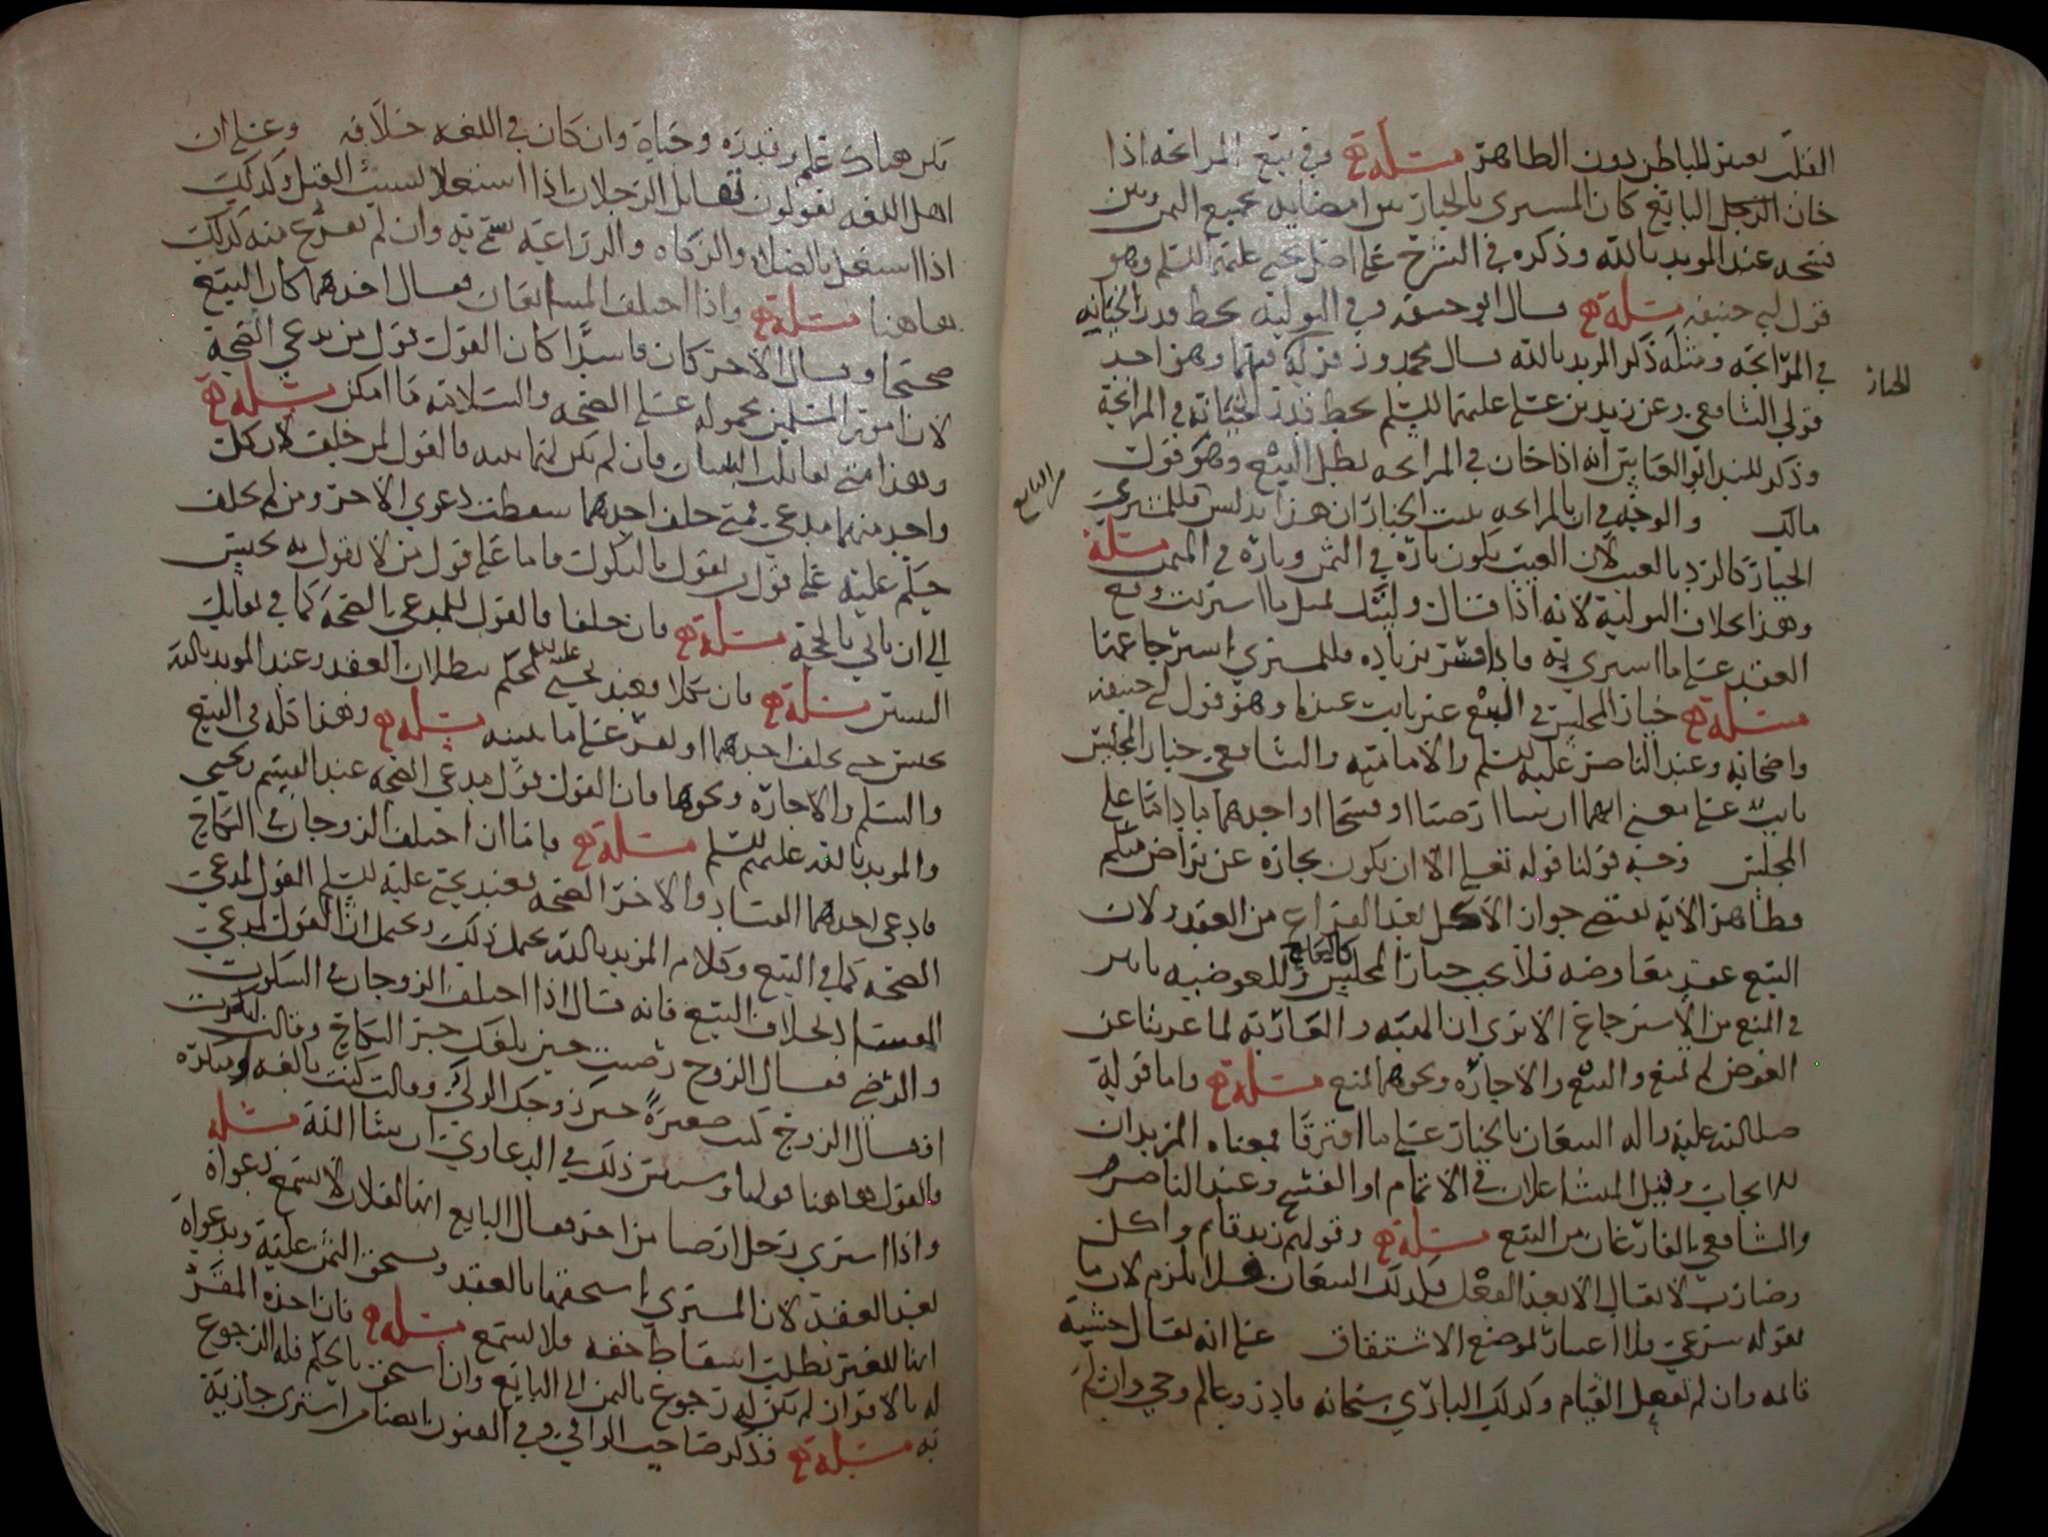 القلب يعتبر للباطن دون الظاهر مسئلة وفي بيع المرابحة اذا
خان الرجل البايع كان المشتري بالخيار بين امضايه بجميع الثمن وبين
فسخه عند المويد بالله وذكره في الشرح على اصل يحيى عليه السلم وهو
قول ابي حنيفه مسئلة قال ابو حنيفه وفي التوليه يحط قدر الخيانه
في المرابحه ومثله ذكر المويد بالله قال محمد وزفر كه فيهما وهو احد
الخيار
قولي الشافعي وعن زيد بن علي عليهما السلم يحط قدر الخيانة في المرابحة
وذكر السيد ابو العباس انه اذا خان في المرابحه بطل البيع وهو قول
مالك والوجه في ان بالمرابحه يثبت الخيار ان هذا تدليس فللمشتري
من البايع
الخيار كالرد بالعيب لان العيب يكون تارة في الثمن وتارة في المثمن مسئلة
وهذا بخلاف التولية لانه اذا قال وليتك بمثل ما اشتريت وقع
العقد على ما اشتري به فاذا زياده فللمشتري استرجاعها
مسئلة خيار المجلس في البيع غير ثابت عندنا وهو قول ابي حنيفه
واصحابه وعند الناصر عليه السلم والامامية والشافعي خيار المجلس
ثابت على معنى انهما ان شاا ارضيا او فسخا او احدهما ما داما على
المجلس وجه قولنا قوله تعالى الا ان يكون تجارة عن تراض منكم
فظاهر الاية يقتضي جواز الاكل بعد الفراغ من العقد ولان
البيع عقد معاوضه فلا يجب خيار المجلس كالنكاح وللعوضيه تاثير
في المنع من الاسترجاع الا ترى ان الهبه والعارية لما عريتا عن
العوض لم تمنع والبيع والاجارة ونحوهما تمنع مسئلة واما قوله
صلى الله عليه واله البيعان بالخيار على ما افترقا فمعناه المريدان
للايجاب وقيل المتشاغلان في الاتمام او الفسخ وعند الناصر
والشافعي الفارغان من البيع مسئلة وقولهم زيد قايم واكل
وضارب لا يقال الا بعد الفعل فكذلك البيعان فلا يلزم لان ما
نقوله شرعي فلا اعتبار لموضع الاشتقاق على انه يقال خشبة
قايمه وان لم تفعل القيام وكذلك الباري سبحانه قادر وعالم وحي وان لم
يكن هنالك علم وقدرة وحياة وان كان في اللغه خلافه وعلى ان
اهل اللغه يقولون تقاتل الرجلان اذا اشتغلا بسبب القتل وكذلك
اذا اشتغل بالصلاة والزكاه والزراعة سمي به وان لم يفرغ منه كذلك
هاهنا مسئلة واذا اختلف المتبايعان فقال احدهما كان البيع
صحيحا وقال الاخر كان فاسدا كان القول قول من يدعي الصحة
لان امور المسلمين محمولة على الصحه والسلامه ما امكن مسئلة
وهذا متى تقابلت البينتان فان لم يكن لهما بينه فالقول لمن حلف لان كل
واحد منهما مدعي فمتى حلف احدهما سقطت دعوى الاخر ومن لم يحلف
حكم عليه على قول من يقول بالنكول واما على قول من لا يقول به يحبس
الى ان ياتي بالحجة مسئلة فان حلفا فالقول للمدعي بالصحة كما في تقابل
البينتين مسئلة فان نكلا فعند يحيى عليه السلم يحكم ببطلان العقد وعند المويد بالله
يحبس حتى يحلف احدهما او يقر على ما بينه مسئلة وهذا كله في البيع
والسلم والاجارة ونحوهما فان القول قول مدعي الصحه عند القسم ويحيى
والمويد بالله عليهم السلم مسئلة فاما ان اختلف الزوجان في النكاح
فادعى احدهما الفساد والاخر الصحه فعند يحيى عليه السلم القول لمدعي
الصحه كما في البيع وكلام المويد بالله يحمل ذلك ويحمل ان القول لمدعي
الفساد بخلاف البيع فانه قال اذا اختلف الزوجان في السكوت
والرضى فقال الزوج رضيت حين بلغك خبر النكاح وقالت انكرت
او قال الزوج كنت صغيرة حين زوجك الولي وقالت كنت بالغه
والقول هاهنا قولها وسيبين ذلك في الدعاوي ان شا الله مسئلة
واذا اشترى رجل ارضا من اخر فقال البايع انها لفلان لا تسمع دعواه
بعد العقد لان المشتري استحقها بالعقد ويستحق الثمن عليه وبدعواه
انها للغير يطلب اسقاط حقه فلا يسمع مسئلة فان اخذه المقر
له بالاقرار لم يكن له رجوع بالثمن الى البايع وان استحق بالحكم فله الرجوع
به مسئلة قد ذكر صاحب الوافي وفي الفنون ايضا من اشترى جارية